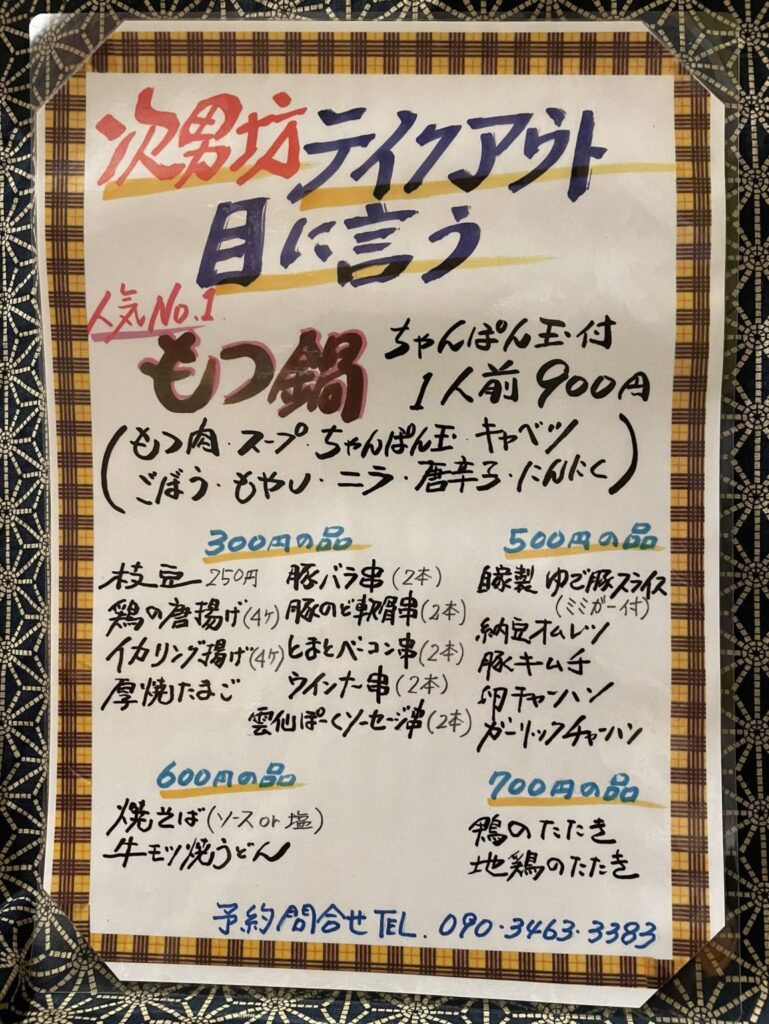 次男坊 テイクアウト
目に言う
人気No.1
もつ鍋 ちゃんぽん玉付
1人前 900円
(もつ肉・スープ・ちゃんぽん玉・キャベツ
ごぼう・もやし・ニラ・唐辛子・にんにく)
300円の品
枝豆 250円
鶏の唐揚げ(4ヶ)
イカリング揚げ(4ヶ)
厚焼たまご
豚バラ串(2本)
豚のど軟骨串(2本)
とまとベーコン串(2本)
ウインナー串(2本)
雲仙ぽーくソーセージ串(2本)
500円の品
自家製 ゆで豚スライス
(ミミガー付)
納豆オムレツ
豚キムチ
卵チャーハン
ガーリックチャーハン
600円の品
焼そば(ソースor塩)
牛モツ焼うどん
700円の品
鴨のたたき
地鶏のたたき
予約問合せTEL. 090-3463-3383